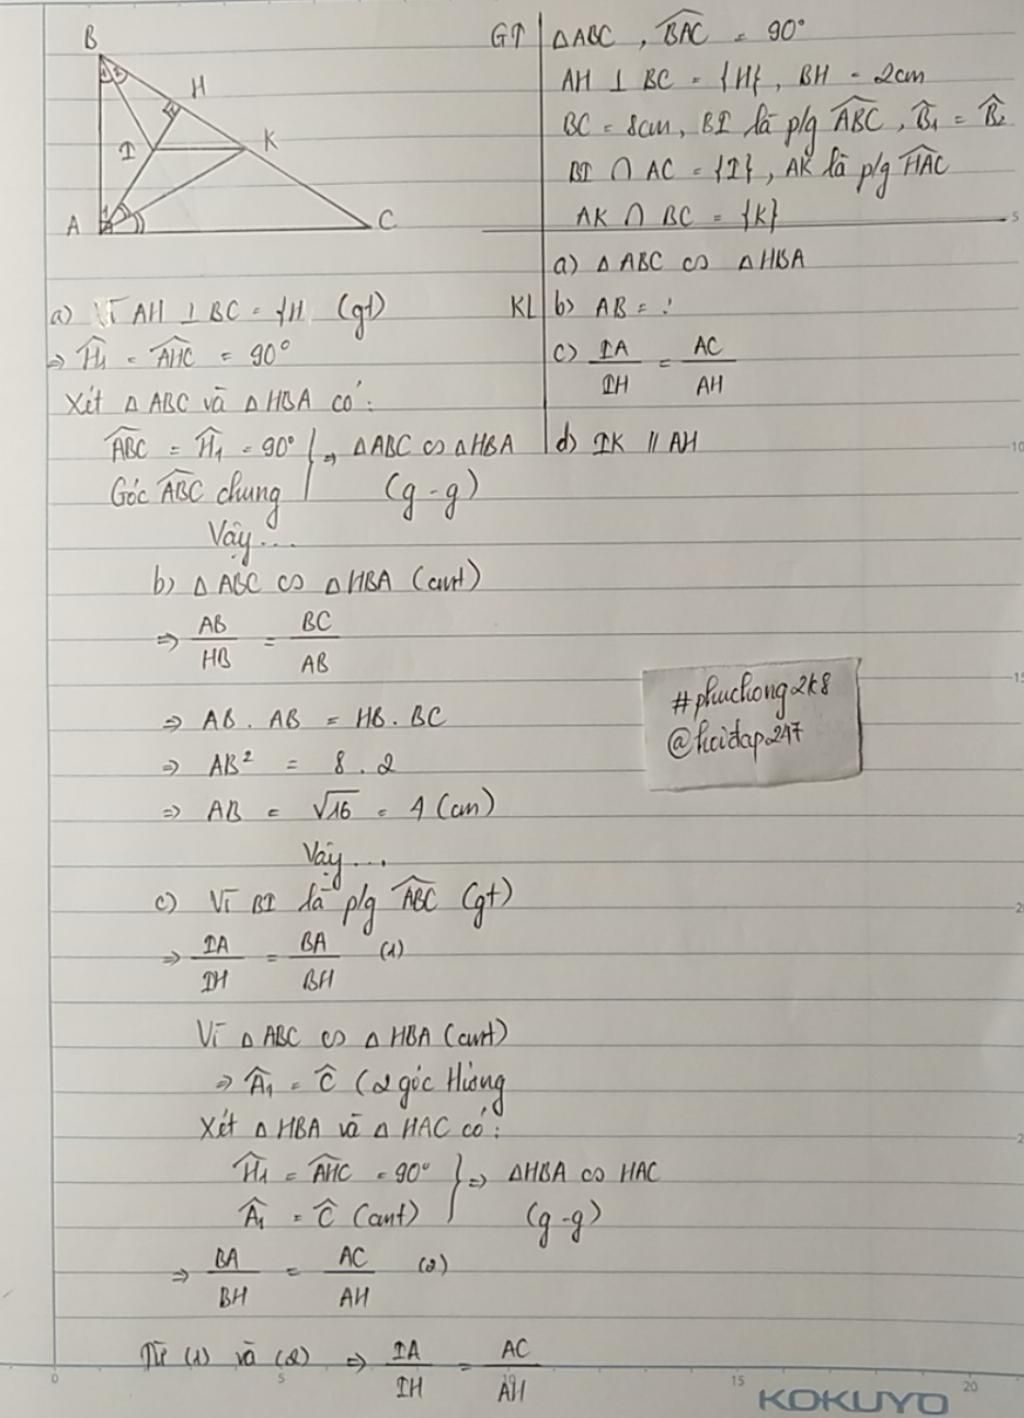 B
H
I
K
A
C
GT
ΔABC, \widehat{BAC} = 90°
AH ⊥ BC = {H}, BH = 2cm
BC = 8cm, BI là p/g \widehat{ABC}, \widehat{B}₁ = \widehat{B}₂
BI ∩ AC = {I}, AK là p/g \widehat{HAC}
AK ∩ BC = {K}
KL
a) ΔABC ∽ ΔHBA
b) AB = ?
c) IA/IH = AC/AH
d) IK // AH
a) Vì AH ⊥ BC = {H (gt)
⇒ \widehat{H}₁ = \widehat{AHC} = 90°
Xét ΔABC và ΔHBA có:
\widehat{ABC} = \widehat{H}₁ = 90° } ⇒ ΔABC ∽ ΔHBA
Góc \widehat{ABC} chung (g-g)
Vậy...
b) ΔABC ∽ ΔHBA (cmt)
⇒ AB/HB = BC/AB
⇒ AB . AB = HB . BC
⇒ AB² = 8 . 2
⇒ AB = √16 = 4 (cm)
Vậy...
#phuchong2k8
@hoidap247
c) Vì BI là p/g \widehat{ABC} (gt)
⇒ IA/IH = BA/BH (1)
Vì ΔABC ∽ ΔHBA (cmt)
⇒ \widehat{A}₁ = \widehat{C} (2 góc
Xét ΔHBA và ΔHAC có:
\widehat{H}₁ = \widehat{AHC} = 90° } ⇒ ΔHBA ∽ HAC
\widehat{A}₁ = \widehat{C} (cmt) (g-g)
⇒ BA/BH = AC/AH (2)
Từ (1) và (2) ⇒ IA/IH = AC/AH
0 5 10 15 20
KOKUYO